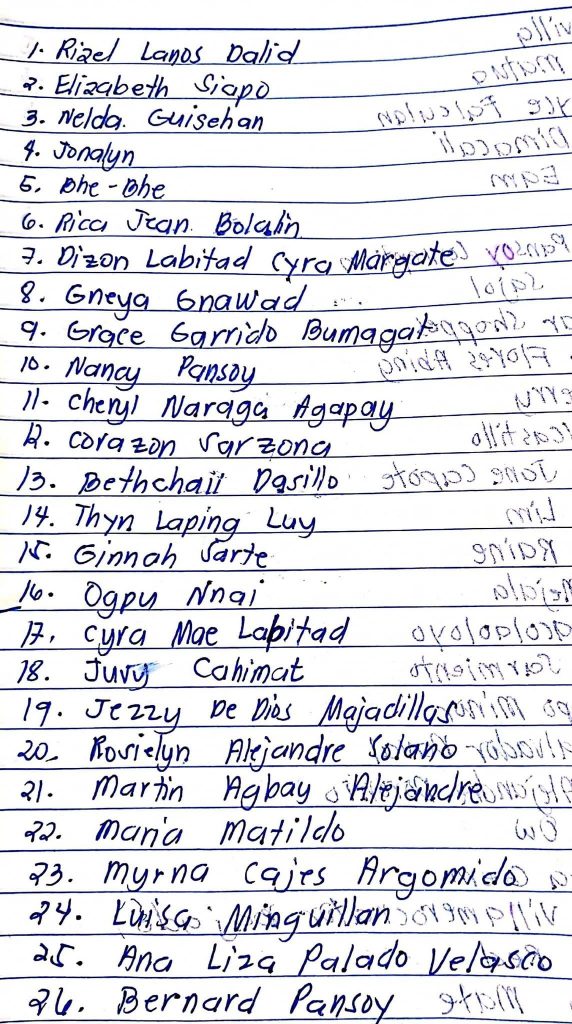 1. Rizel Lanos Dalid
2. Elizabeth Siapo
3. Nelda. Guisehan
4. Jonalyn
5. Bhe-Bhe
6. Rica Jean Bolalin
7. Dizon Labitad Cyra Margate
8. Gneya Gnawad
9. Grace Garrido Bumagat
10. Nancy Pansoy
11. Cheryl Naraga Agapay
12. Corazon Sarzona
13. Bethchaii Dasillo
14. Thyn Laping Luy
15. Ginnah Sarte
16. Ogpu Nnai
17. Cyra Mae Labitad
18. Juvy Cahimat
19. Jezzy De Dios Majadillas
20. Rosielyn Alejandre Solano
21. Martin Agbay Alejandre
22. Maria Matildo
23. Myrna Cajes Argomido
24. Luisa Minguillan
25. Ana Liza Palado Velasco
26. Bernard Pansoy